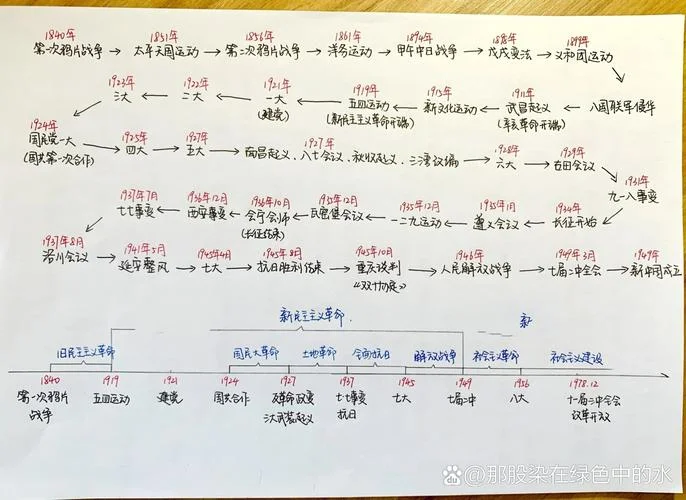 1840年 1851年 1856年 1861年 1894年 1898年 1899年
第一次鸦片战争 → 太平天国运动 → 第二次鸦片战争 → 洋务运动 → 甲午中日战争 → 戊戌变法 → 义和团运动
1923年 1922年 1921年 1919年 1915年 1911年
三大 ← 二大 ← 一大 ← 五四运动 ← 新文化运动 ← 武昌起义 ← 八国联军侵华
(建党) (新民主主义革命开端) (辛亥革命开端)
1924年 1925年 1927年 1927年 1928年 1929年
国民党一大 → 四大 → 五大 → 南昌起义、八七会议、秋收起义、三湾改编 → 六大 → 古田会议
(国共第一次合作)
1931年
九一八事变
1937年7月 1936年12月 1936年10月 1935年12月 1935年12月 1935年1月 1934年
七七事变 ← 西安事变 ← 会宁会师 ← 瓦窑堡会议 ← 一二九运动 ← 遵义会议 ← 长征开始
(长征结束)
1937年8月 1941年5月 1945年4月 1945年8月 1945年10月 1946年 1949年3月 1949年
洛川会议 → 延安整风 → 七大 → 抗日胜利结束 → 重庆谈判 → 人民解放战争 → 七届二中全会 → 新中国成立
"双十协定"
新民主主义革命 新
旧民主主义革命 国民大革命 土地革命 全面抗日 解放战争 社会主义革命 社会主义建设
1840 1919 1921 1924 1927 1937 1945 1949 1956 1978.12
第一次鸦片 五四运动 建党 国共合作 反革命政变 七七事变 七大 七届二中 八大 十一届三中全会
战争 三大武装起义 抗日 改革开放
@那股染在绿色中的水